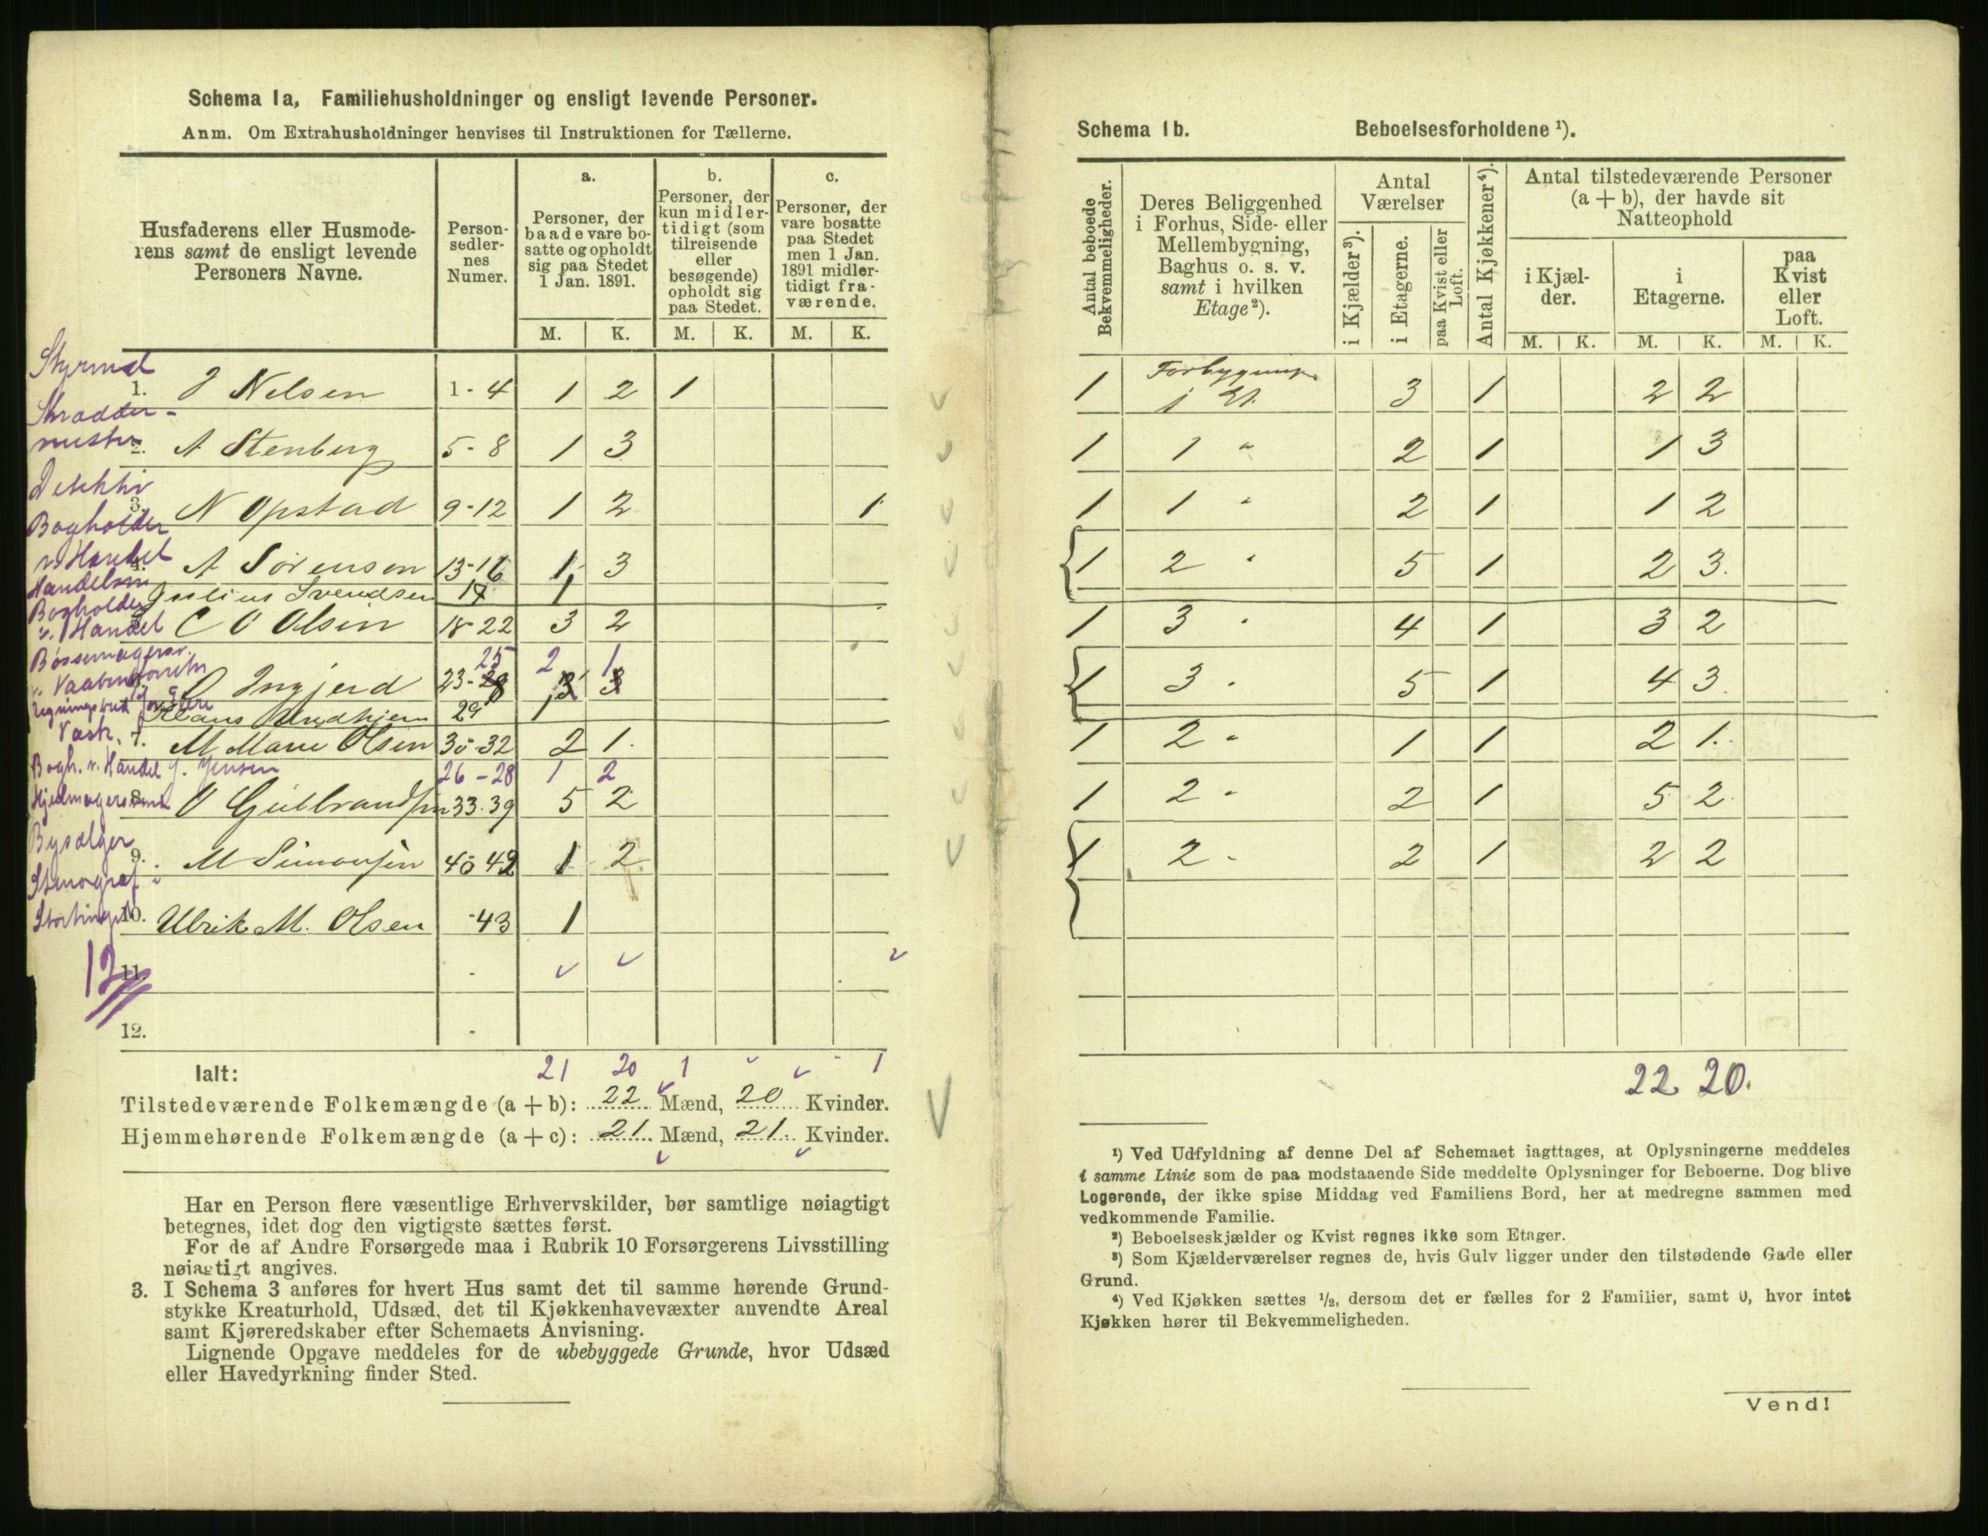 Schema 1a, Familiehusholdninger og ensligt levende Personer.
Anm. Om Extrahusholdninger henvises til Instruktionen for Tællerne.
Husfaderens eller Husmoderens samt de ensligt levende Personers Navne.
Personsedlernes Numer.
a. Personer, der baade vare bosatte og opholdt sig paa Stedet 1 Jan. 1891.
b. Personer, der kun midlertidigt (som tilreisende eller besøgende) opholdt sig paa Stedet.
c. Personer, der vare bosatte paa Stedet men 1 Jan. 1891 midlertidigt fraværende.
M. K. M. K. M. K.
Styrmd
1. J Nelsen 1-4 1 2 1
Skrædder-
mester
2. A Stenberg 5-8 1 3
Detektiv
3. N Opstad 9-12 1 2 1
Bogholder
v. Handel
4. A Sörensen 13-16 1 3
Handelsm
Julius Svendsen 17 1
Bogholder
v. Handel
5. C O Olsen 18-22 3 2
Bøssemagersv.
v. Vaabenforretn
25 2 1
O Ingjerd 23-28 3 3
29 1
Vask.
7. M Marie Olsen 30-32 2 1.
Bogh. v. Handel J. Jensen 26-28 1 2
8. O Gulbrandsen 33-39 5 2
Bysælger
9. M Simonsen 40 42 1 2
Stenograf i
Stortinget
10. Ulrik M. Olsen -43 1
12
11.
12.
Ialt: 21 20 1 1
Tilstedeværende Folkemængde (a + b): 22 Mænd, 20 Kvinder.
Hjemmehørende Folkemængde (a + c): 21 Mænd, 21 Kvinder.
Har en Person flere væsentlige Erhvervskilder, bør samtlige nøiagtigt
betegnes, idet dog den vigtigste sættes først.
For de af Andre Forsørgede maa i Rubrik 10 Forsørgerens Livsstilling
nøiagtigt angives.
3. I Schema 3 anføres for hvert Hus samt det til samme hørende Grund-
stykke Kreaturhold, Udsæd, det til Kjøkkenhavevæxter anvendte Areal
samt Kjøreredskaber efter Schemaets Anvisning.
Lignende Opgave meddeles for de ubebyggede Grunde, hvor Udsæd
eller Havedyrkning finder Sted.
Schema 1b. Beboelsesforholdene ¹).
Antal beboede Bekvemmeligheder.
Deres Beliggenhed i Forhus, Side- eller Mellembygning, Baghus o. s. v. samt i hvilken Etage ²).
Antal Værelser
i Kjælder ³).
i Etagerne.
paa Kvist eller Loft.
Antal Kjøkkener ⁴).
Antal tilstedeværende Personer (a + b), der havde sit Natteophold
i Kjælder.
i Etagerne.
paa Kvist eller Loft.
M. K. M. K. M. K.
1 Forbygning 1 Et. 3 1 2 2
1 1 " 2 1 1 3
1 1 " 2 1 1 2
1 2 " 5 1 2 3.
1 3 " 4 1 3 2
1 3 " 5 1 4 3.
1 2 " 1 1 2 1.
1 2 " 2 1 5 2.
1 2 " 2 1 2 2
22 20.
¹) Ved Udfyldning af denne Del af Schemaet iagttages, at Oplysningerne meddeles
i samme Linie som de paa modstaaende Side meddelte Oplysninger for Beboerne. Dog blive
Logerende, der ikke spise Middag ved Familiens Bord, her at medregne sammen med
vedkommende Familie.
²) Beboelseskjælder og Kvist regnes ikke som Etager.
³) Som Kjælderværelser regnes de, hvis Gulv ligger under den tilstødende Gade eller
Grund.
⁴) Ved Kjøkken sættes ¹/₂, dersom det er fælles for 2 Familier, samt 0, hvor intet
Kjøkken hører til Bekvemmeligheden.
Vend!